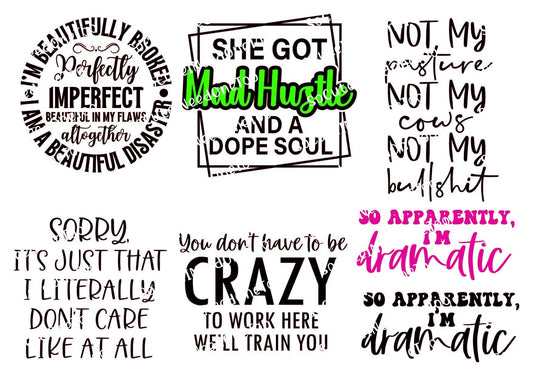 I'M BEAUTIFULLY BROKEN
Perfectly
IMPERFECT
BEAUTIFUL IN MY FLAWS
altogether
I AM A BEAUTIFUL DISASTER
SHE GOT
Mad Hustle
AND A
DOPE SOUL
NOT MY
pasture
NOT MY
cows
NOT MY
bullshit
SORRY,
IT'S JUST THAT
I LITERALLY
DON'T CARE
LIKE AT ALL
You don't have to be
CRAZY
TO WORK HERE
WE'LL TRAIN YOU
SO APPARENTLY,
I'M
dramatic
SO APPARENTLY,
I'M
dramatic